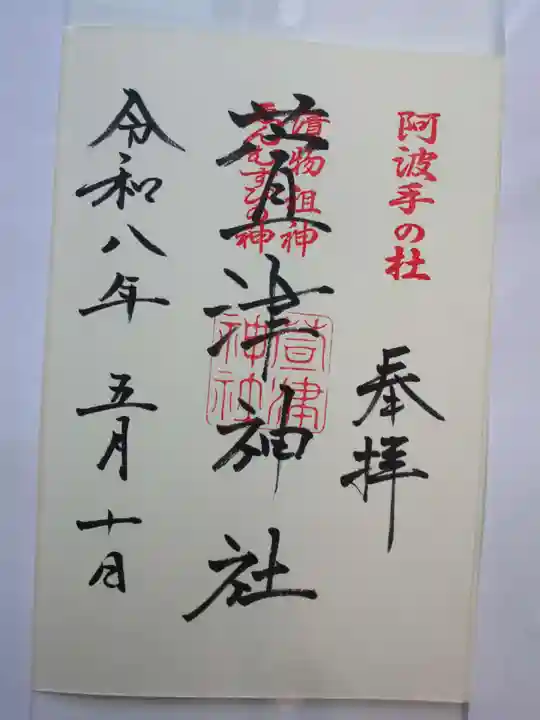 阿波手の杜
奉拝
漬物祖神
えんむすびの神
萱津神社
萱津神社
令和八年 五月 十日